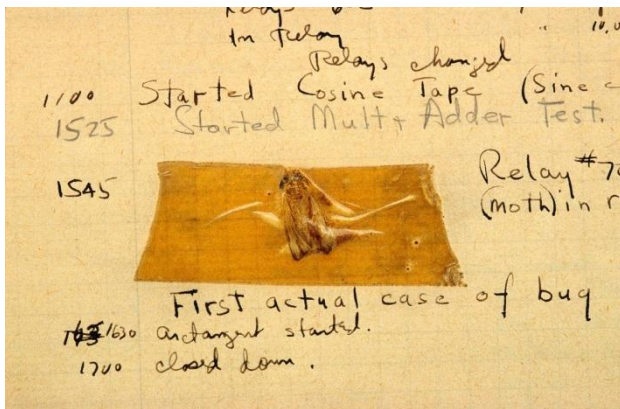 In Relay
Relays changed
1100 Started Cosine Tape (Sine
1525 Started Mult + Adder Test.
1545 Relay #7
(moth) in r
First actual case of bug
1630 arctangent started.
1700 closed down.